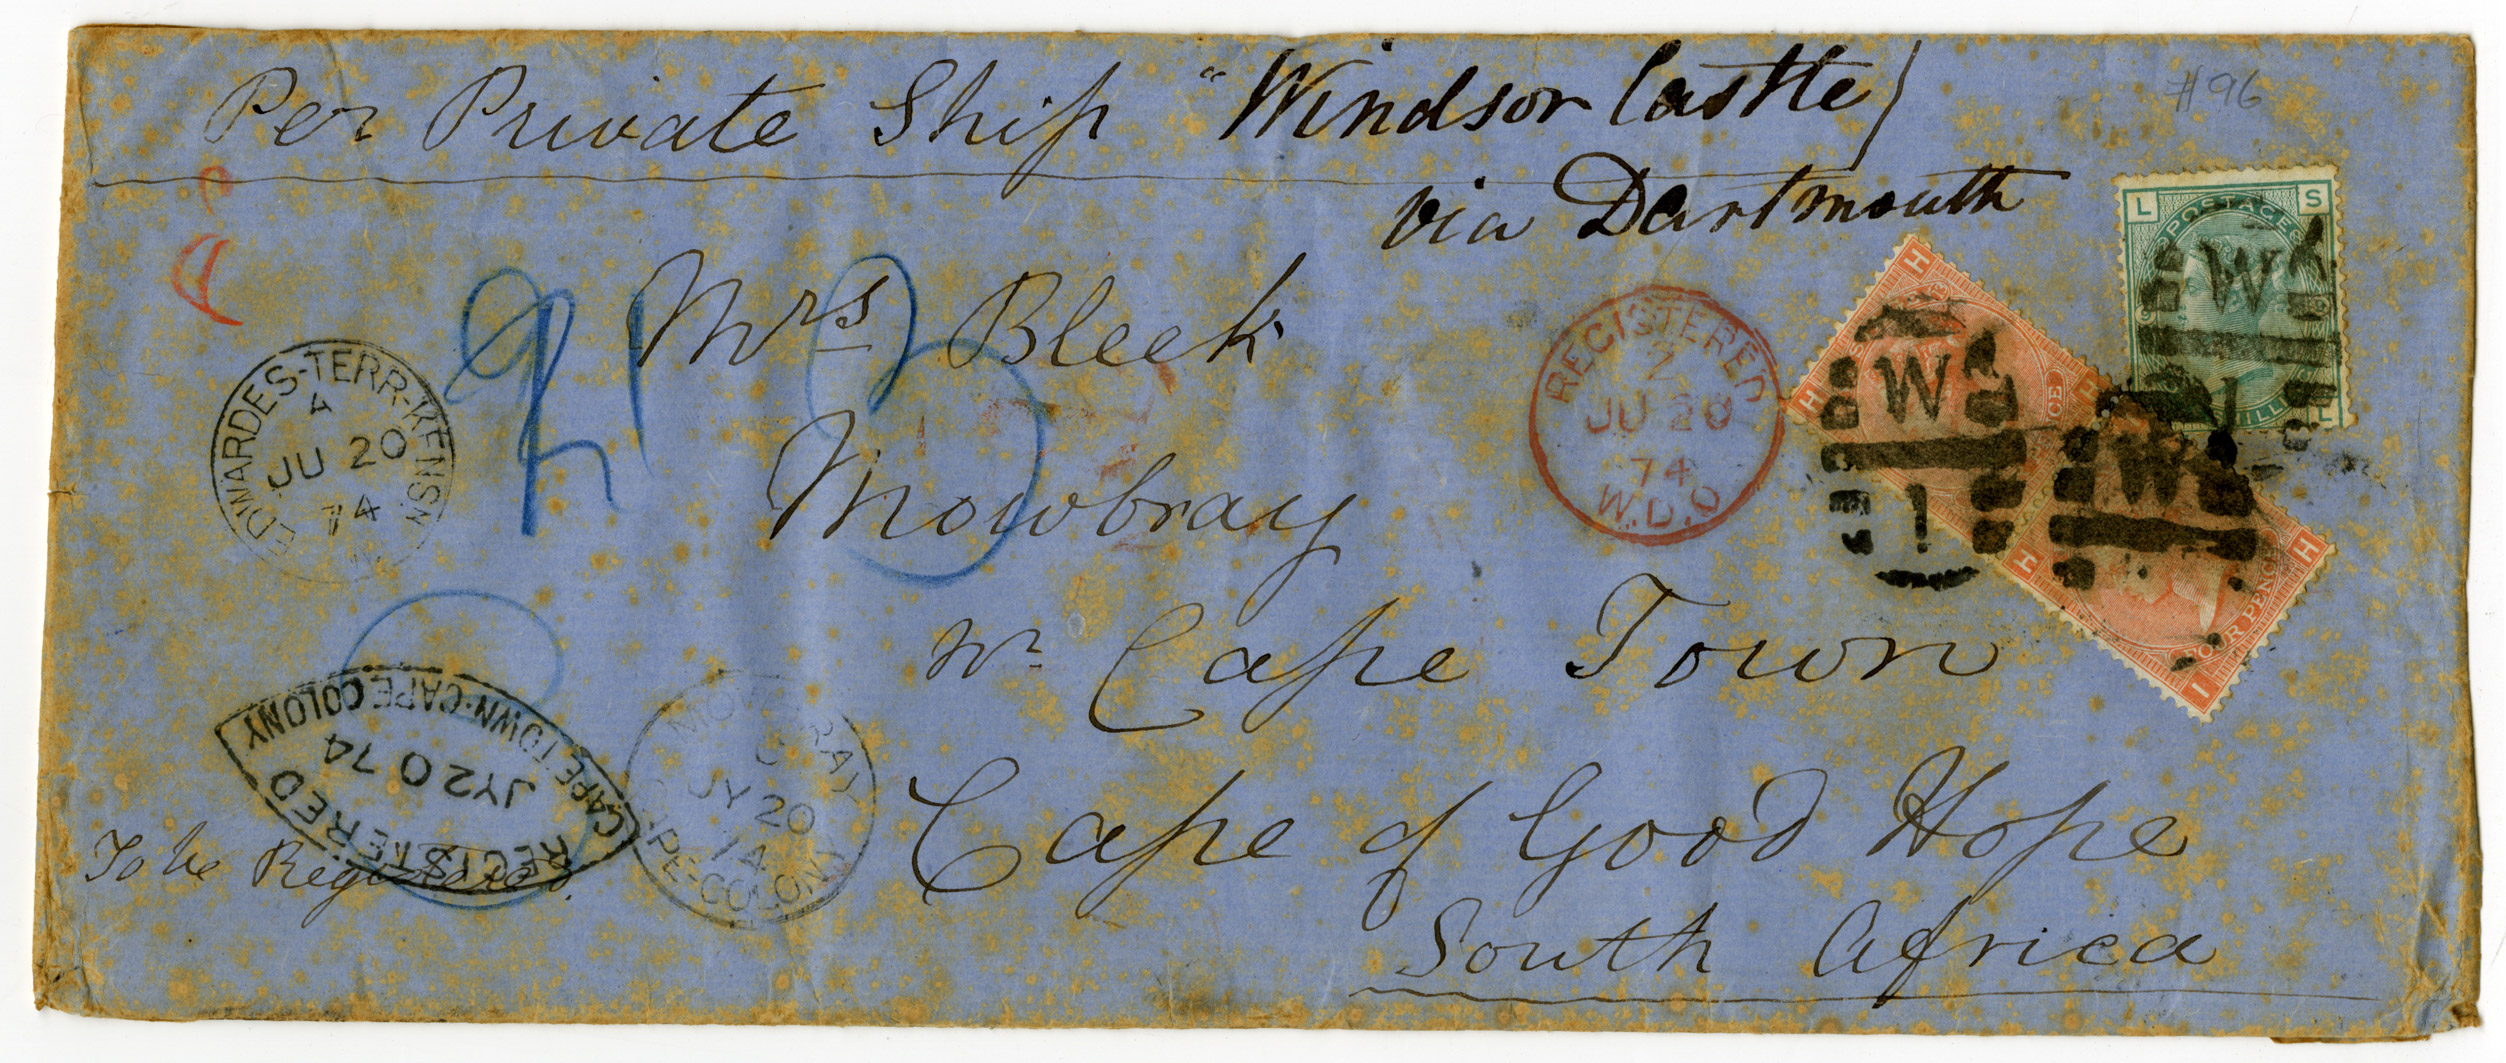 Per Private Ship "Windsor Castle/
#96
via Dartmouth
Mrs Bleek
Mowbray
nr Cape Town
Cape of Good Hope
South Africa
To be Registered
EDWARDES-TERR-KENSN
A
JU 20
74
REGISTERED
2
JU 20
74
W.D.O
REGISTERED
JY 20 74
CAPE TOWN·CAPE COLONY
MOWBRAY
JY 20
74
CAPE-COLONY
L S
POSTAGE
W
L
H
H
W
1
H
W
H
FOUR PENCE
I